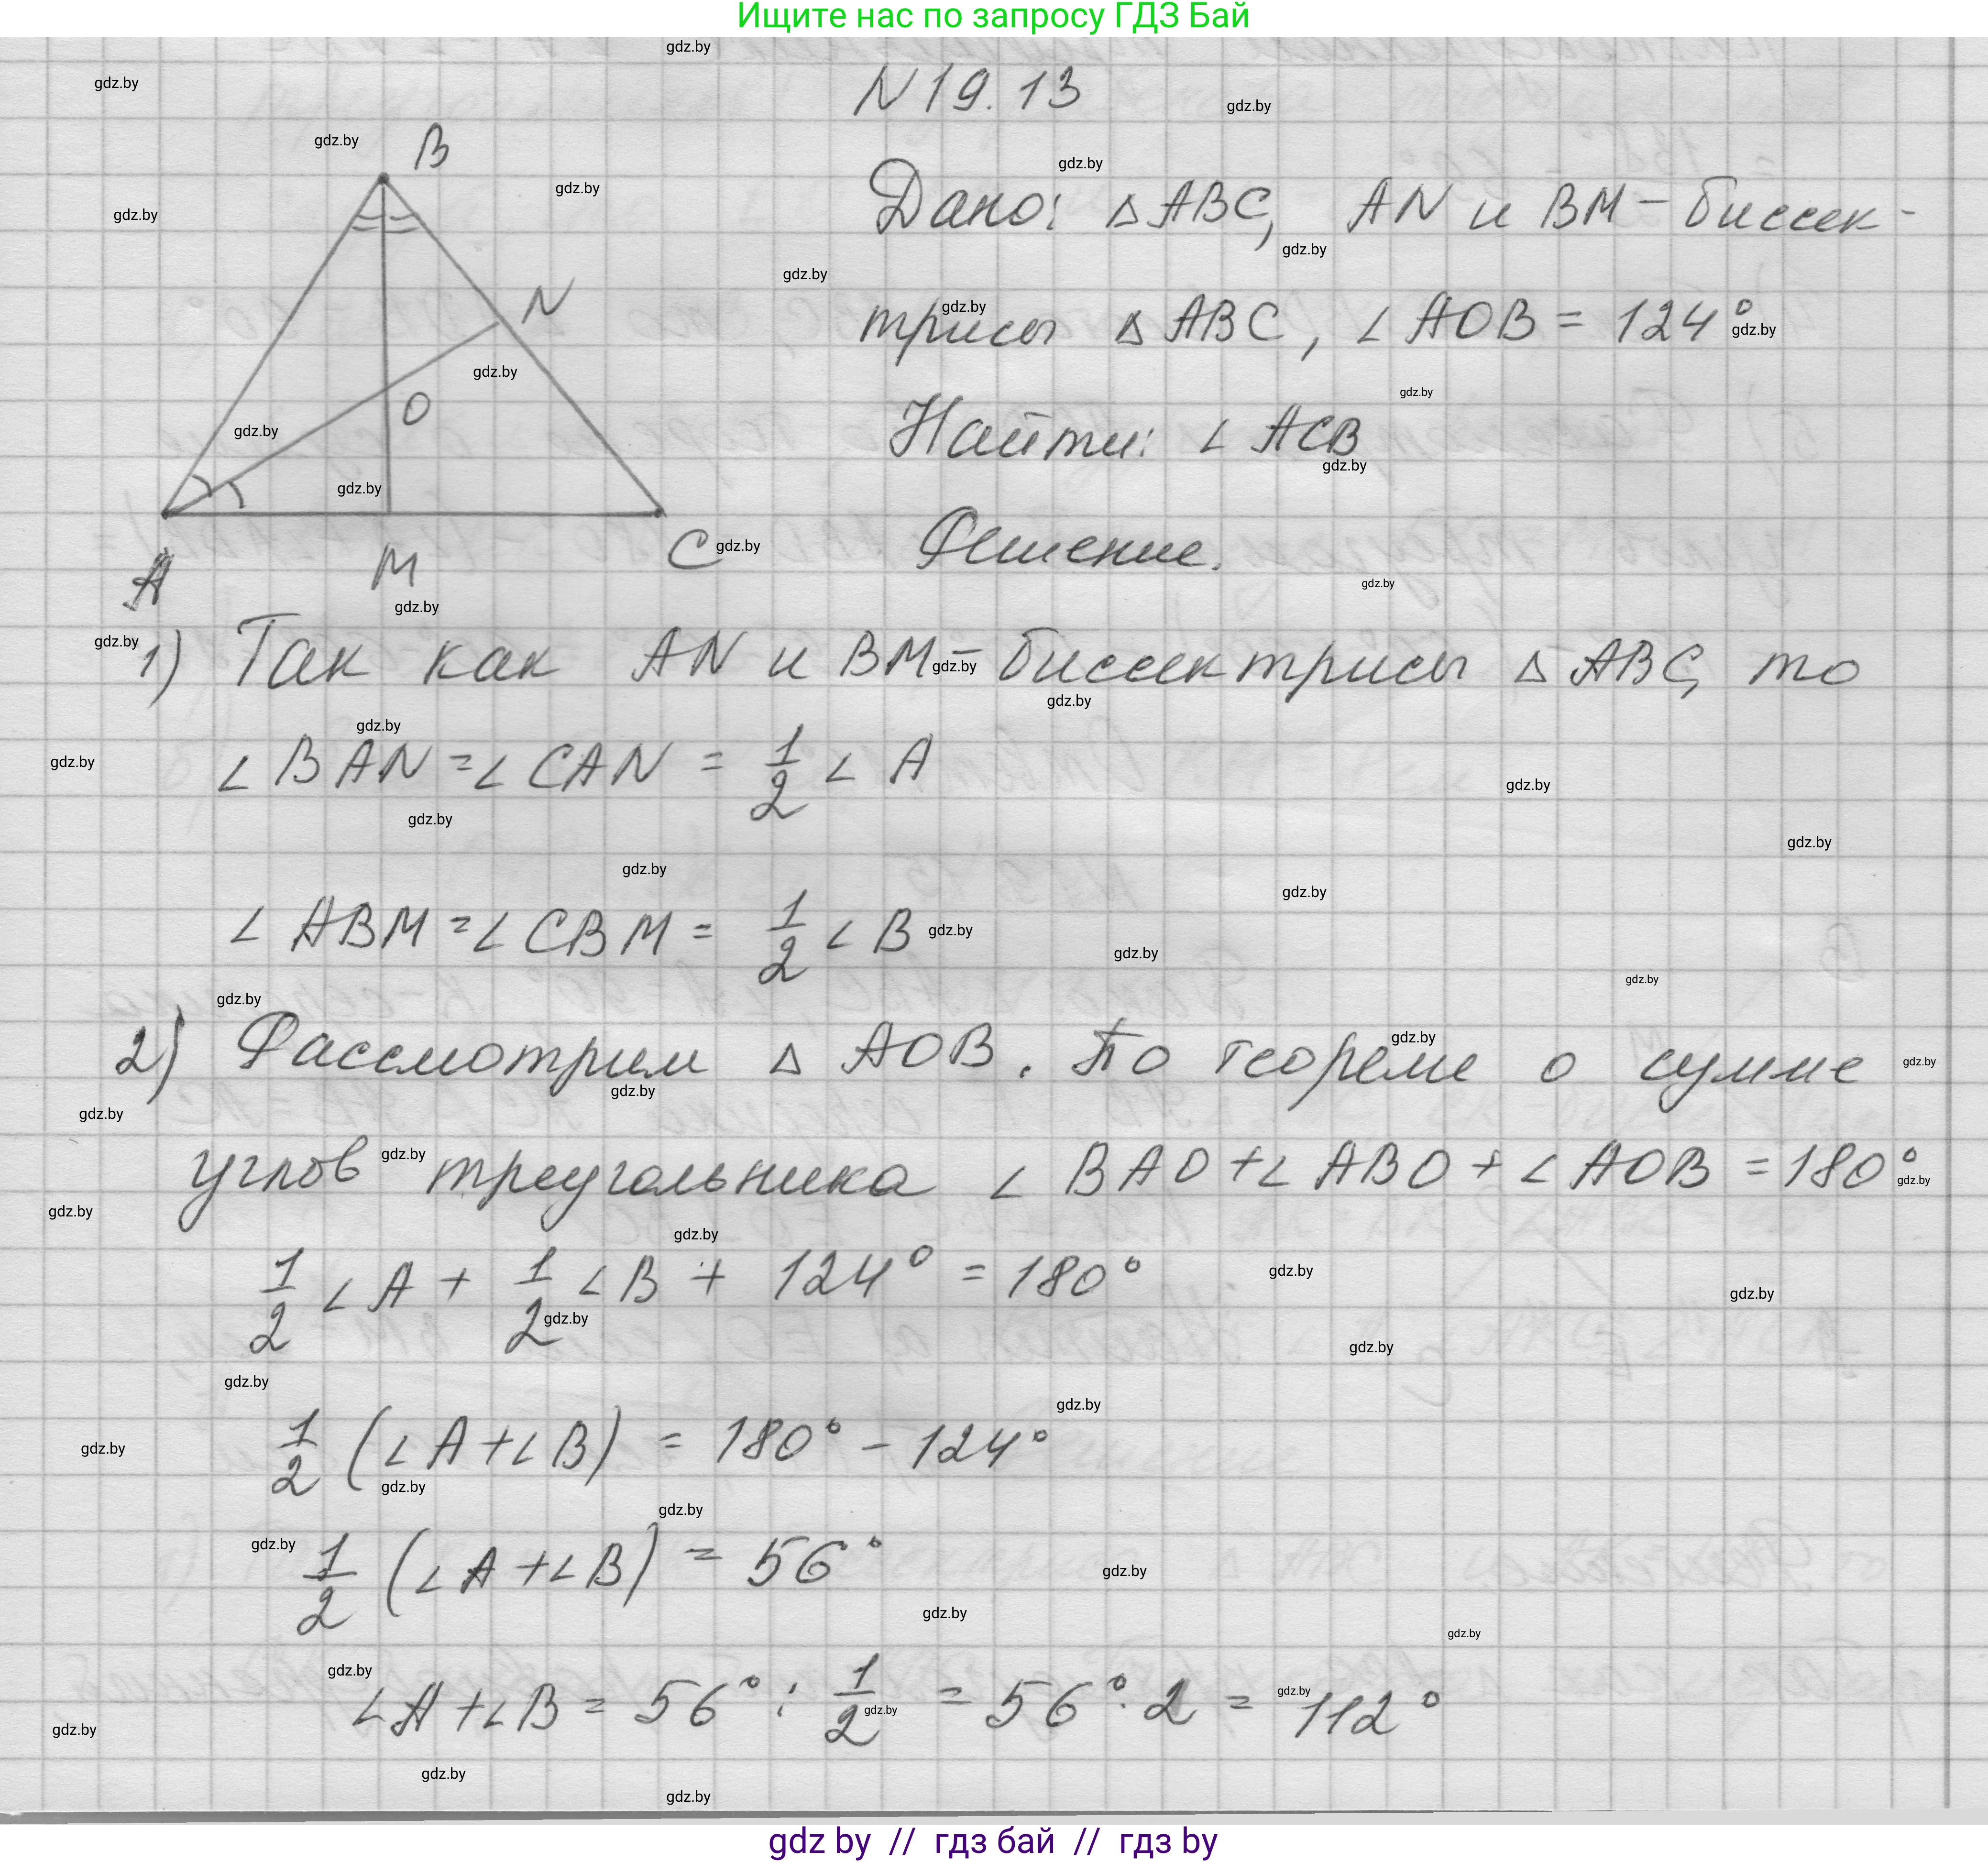 Ищите нас по запросу ГДЗ Бай
N 19.13
Дано: △ ABC, AN и BM - биссек-
трисы △ ABC, ∠ AOB = 124°
Найти: ∠ ACB
Решение.
B
N
O
A
M
C
1) Так как AN и BM - биссектрисы △ ABC, то
∠ BAN = ∠ CAN = 1/2 ∠ A
∠ ABM = ∠ CBM = 1/2 ∠ B
2) Рассмотрим △ AOB. По теореме о сумме
углов треугольника ∠ BAO + ∠ ABO + ∠ AOB = 180°
1/2 ∠ A + 1/2 ∠ B + 124° = 180°
1/2 (∠ A + ∠ B) = 180° - 124°
1/2 (∠ A + ∠ B) = 56°
∠ A + ∠ B = 56° : 1/2 = 56° · 2 = 112°
gdz by // гдз бай // гдз by